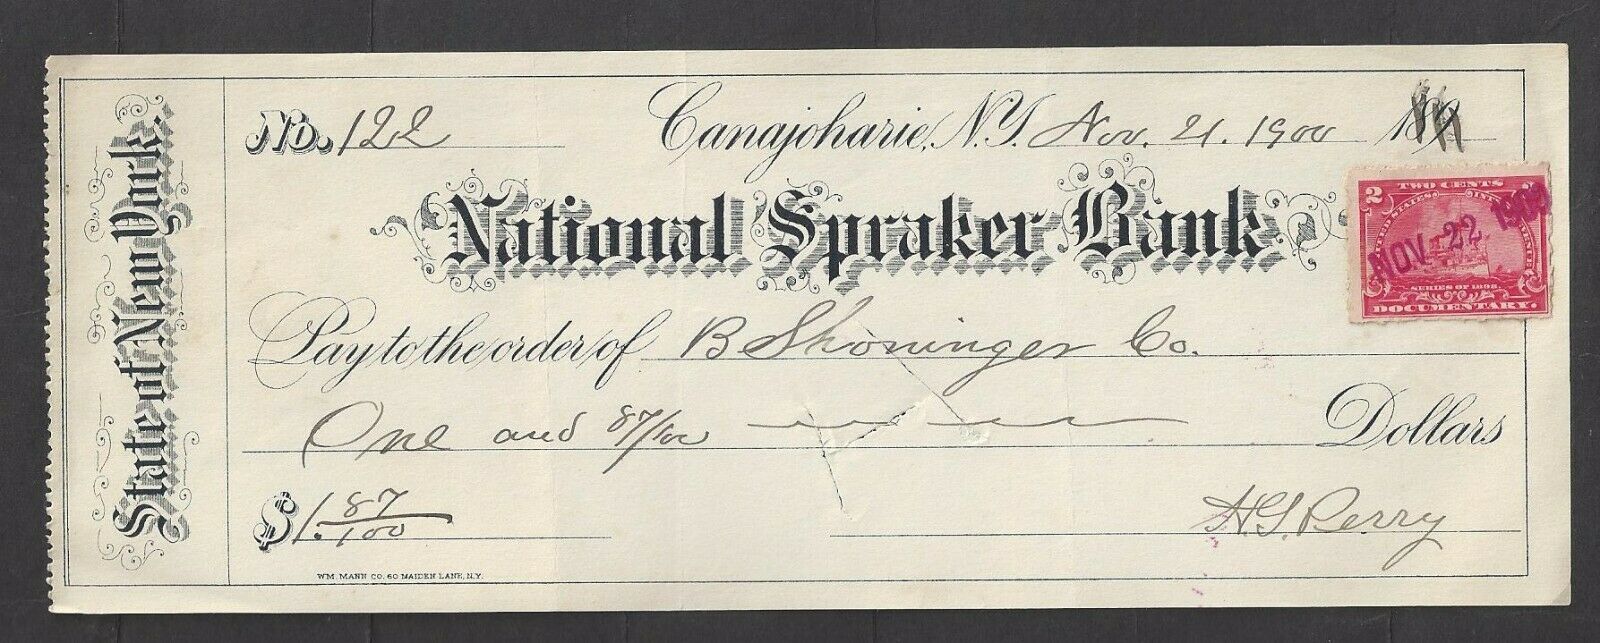 State of New York.
No. 122
Canajoharie, N.Y. Nov. 21. 1900 189
National Spraker Bank
Pay to the order of B Shoninger Co.
One and 87/100 Dollars
$1. 87/100
H.G. Perry
WM. MANN CO. 60 MAIDEN LANE, N.Y.
2 TWO CENTS 2
SERIES OF 1898.
DOCUMENTARY.
NOV. 22 1900